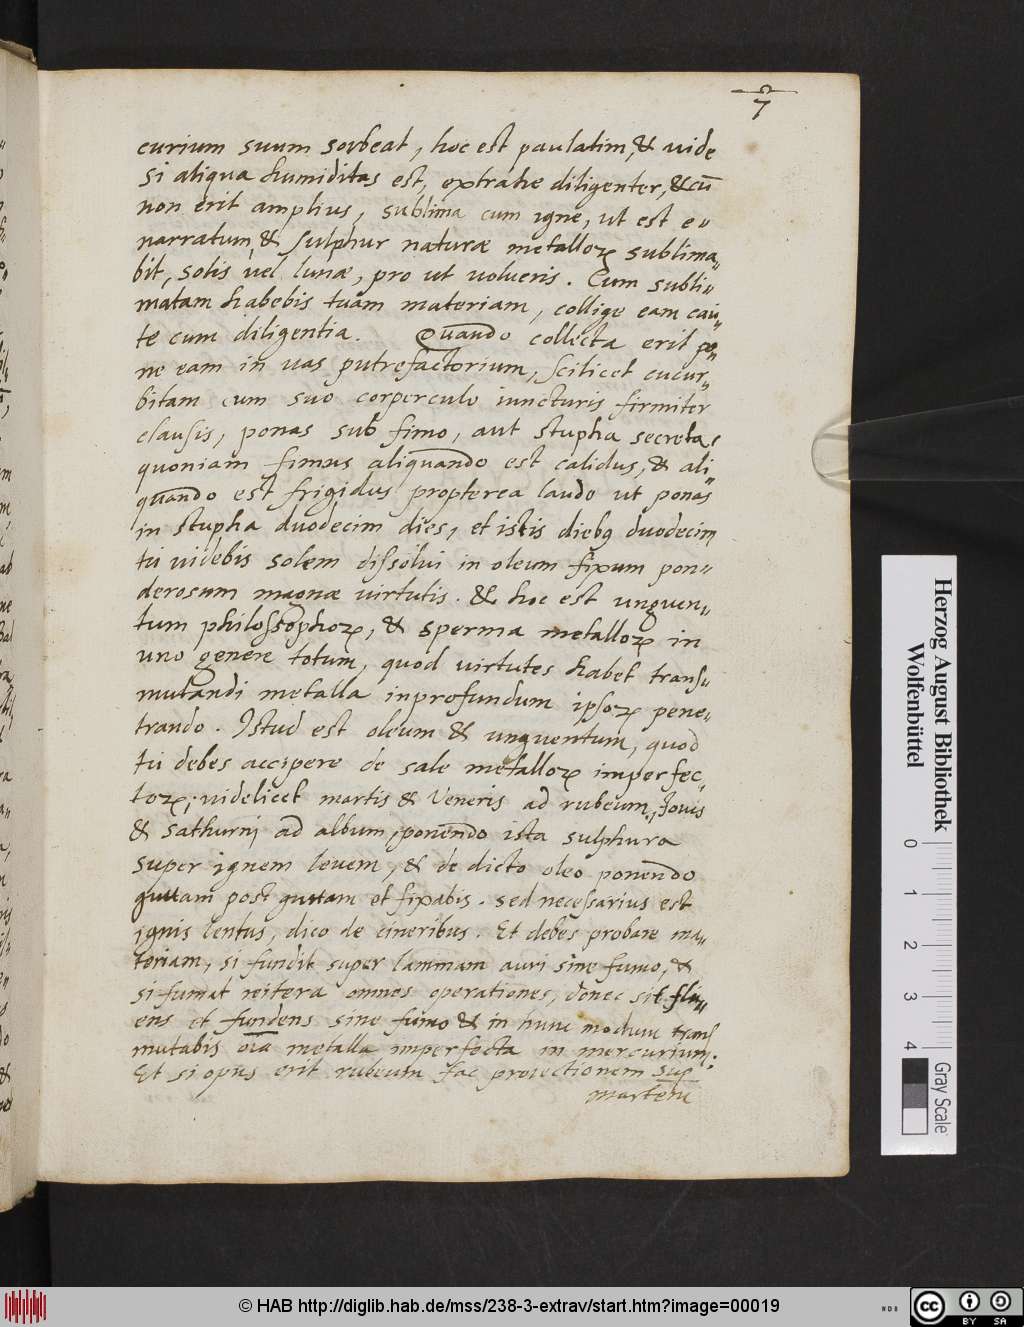 7
curium suum sorbeat, hoc est paulatim, & uide
si aliqua humiditas est, extrahe diligenter, & cū
non erit amplius, sublima cum igne, ut est e„
narratum, & sulphur naturæ metalloꝝ sublima„
bit, solis uel lunæ, pro ut uolueris. Cum subli„
matam habebis tuam materiam, collige eam cau„
te cum diligentia. Quando collecta erit po„
ne eam in uas putrefactorium, scilicet cucur„
bitam cum suo corperculo iuncturis firmiter
clausis, ponas sub fimo, aut stupha secreta,
quoniam fimus aliquando est calidus, & ali„
quando est frigidus propterea laudo ut ponas
in stupha duodecim dies, et istis diebꝫ duodecim
tu uidebis solem dissolui in oleum fixum pon„
derosum magnæ uirtutis. & hoc est unguen„
tum philosophoꝝ, & sperma metalloꝝ in
uno genere totum, quod uirtutes habet trans„
mutandi metalla inprofundum ipsoꝝ pene„
trando. Istud est oleum & unguentum, quod
tu debes accipere de sale metalloꝝ imperfec„
toꝝ; uidelicet martis & Veneris ad rubeum, Jouis
& sathurnj ad album, ponendo ista sulphura
super ignem leuem, & de dicto oleo ponendo
guttam post guttam et fixabis. sed necessarius est
ignis lentus, dico de cineribus. Et debes probare ma„
teriam, si fundit super lammam auri sine fumo, &
si fumat reitera omnes operationes, donec sit flu„
ens et fundens sine fumo & in hunc modum trans„
mutabis oīa metalla imperfecta in mercurium.
Et si opus erit rubeum fac proiectionem sup
martem
Herzog August Bibliothek
Wolfenbüttel
0 1 2 3 4
Gray Scale
© HAB http://diglib.hab.de/mss/238-3-extrav/start.htm?image=00019
cc BY SA